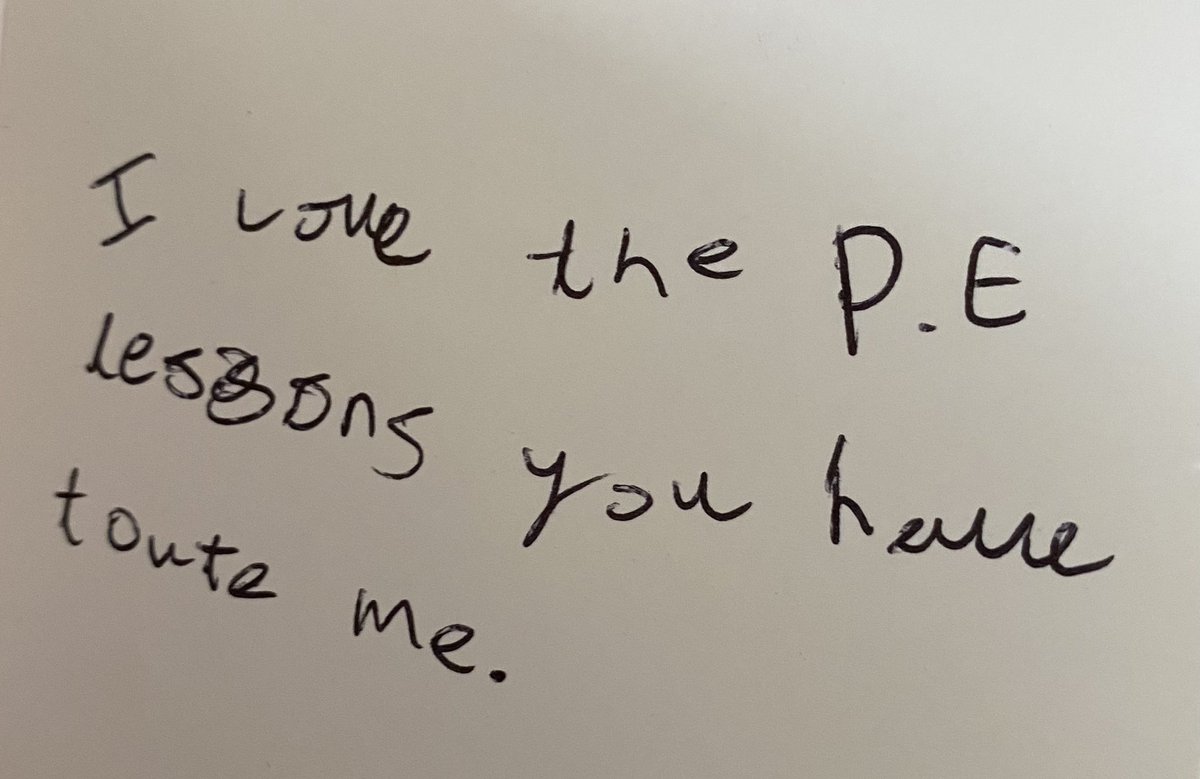 I love the P.E
lessons you have
toute me.